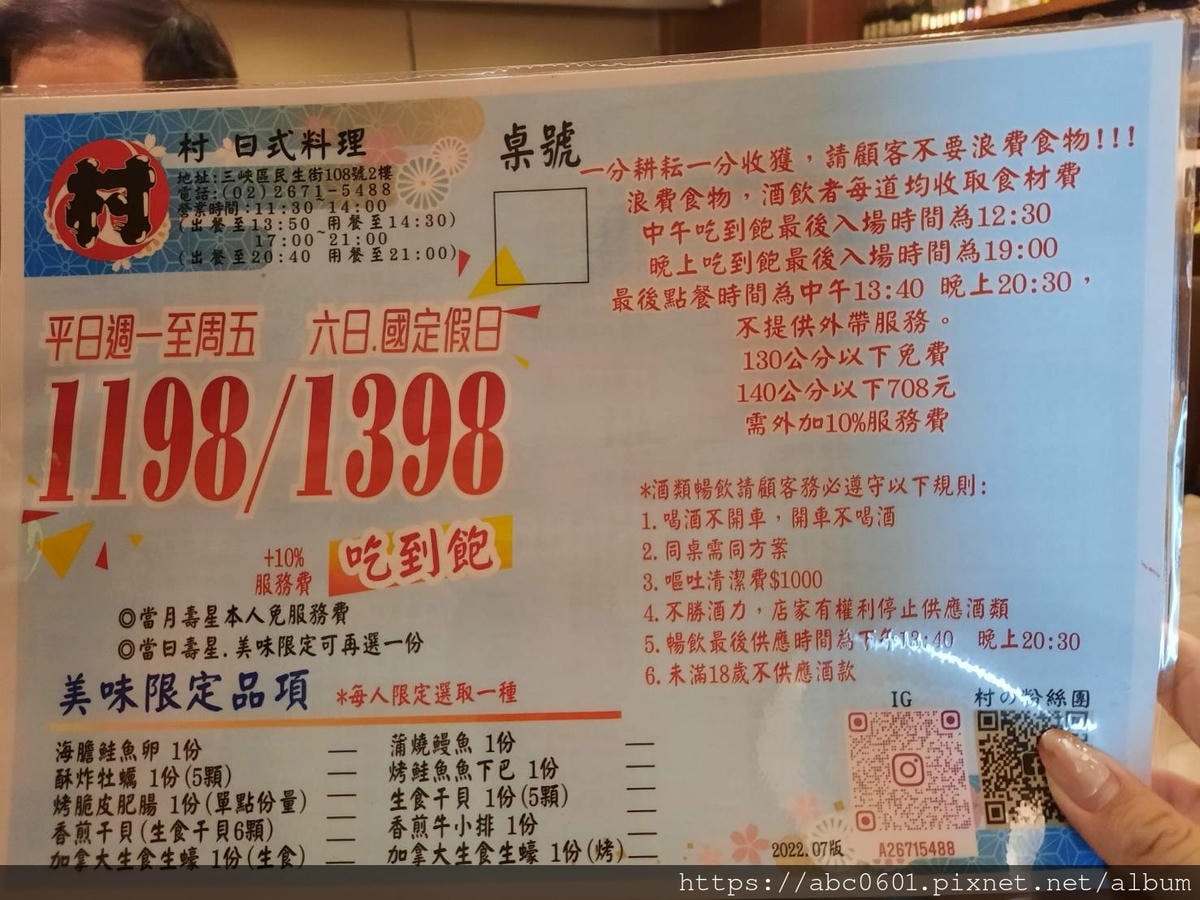 村
村 日式料理
地址:三峽區民生街108號2樓
電話:(02)2671-5488
營業時間:11:30~14:00
(出餐至13:50 用餐至14:30)
17:00~21:00
(出餐至20:40 用餐至21:00)
桌號
一分耕耘一分收獲,請顧客不要浪費食物!!!
浪費食物,酒飲者每道均收取食材費
中午吃到飽最後入場時間為12:30
晚上吃到飽最後入場時間為19:00
最後點餐時間為中午13:40 晚上20:30,
不提供外帶服務。
130公分以下免費
140公分以下708元
需外加10%服務費
平日週一至周五 六日.國定假日
1198/1398
+10%
服務費
吃到飽
◎當月壽星本人免服務費
◎當日壽星.美味限定可再選一份
*酒類暢飲請顧客務必遵守以下規則:
1.喝酒不開車,開車不喝酒
2.同桌需同方案
3.嘔吐清潔費$1000
4.不勝酒力,店家有權利停止供應酒類
5.暢飲最後供應時間為下午13:40 晚上20:30
6.未滿18歲不供應酒款
美味限定品項 *每人限定選取一種
海膽鮭魚卵 1份
酥炸牡蠣 1份(5顆)
烤脆皮肥腸 1份(單點份量)
香煎干貝(生食干貝6顆)
加拿大生食生蠔 1份(生食)
蒲燒鰻魚 1份
烤鮭魚魚下巴 1份
生食干貝 1份(5顆)
香煎牛小排 1份
加拿大生食生蠔 1份(烤)
IG 村の粉絲團
2022.07版
A26715488
https://abc0601.pixnet.net/album